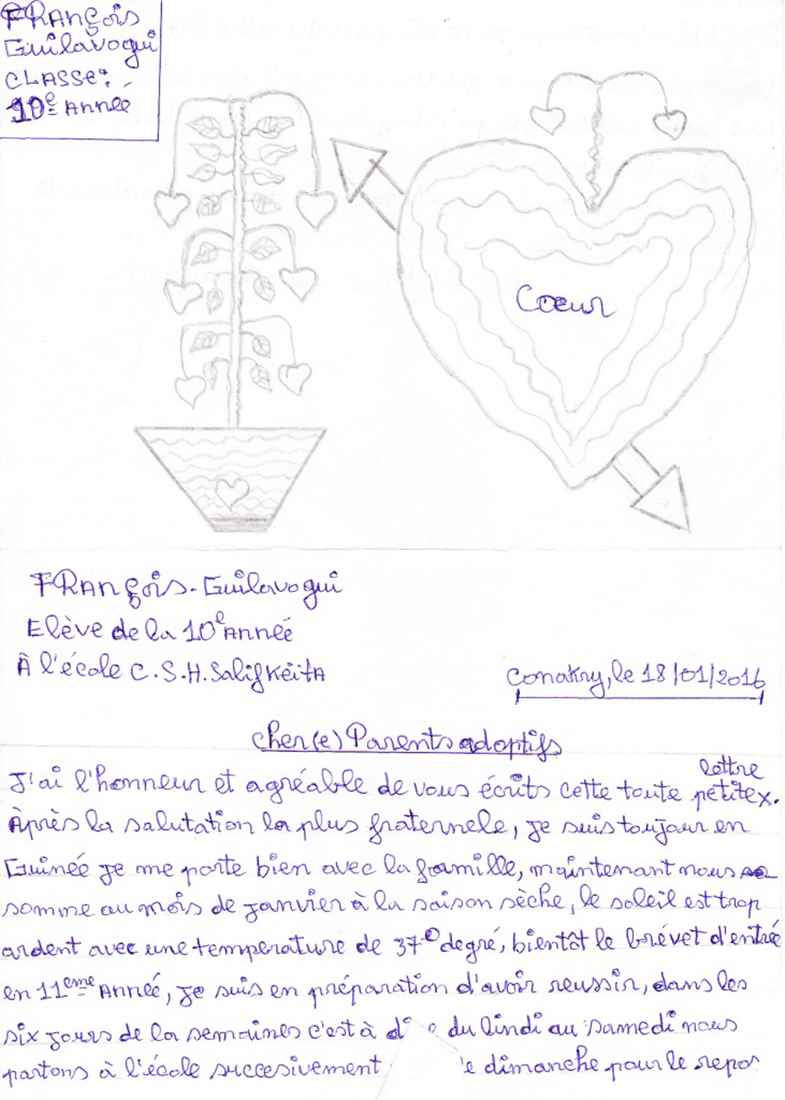 FRANçois
Guilavogui
CLASSE:
10e Année
Coeur
FRANçois-Guilavogui
Elève de la 10e Année
À l'école C.S.H.Salifkéita
Conakry, le 18/01/2016
cher(e) Parents adoptifs
J'ai l'honneur et agréable de vous écrits cette toute petite lettre.
Après la salutation la plus fraternele, je suis toujour en
Guinée je me porte bien avec la famille, maintenant nous
somme au mois de janvier à la saison sèche, le soleil est trop
ardent avec une temperature de 37° degré, bientôt le brévet d'entrée
en 11eme Année, je suis en préparation d'avoir reussir, dans les
six jours de la semaines c'est à du lindi au samedi nous
partons à l'école succesivement dimanche pour le repos